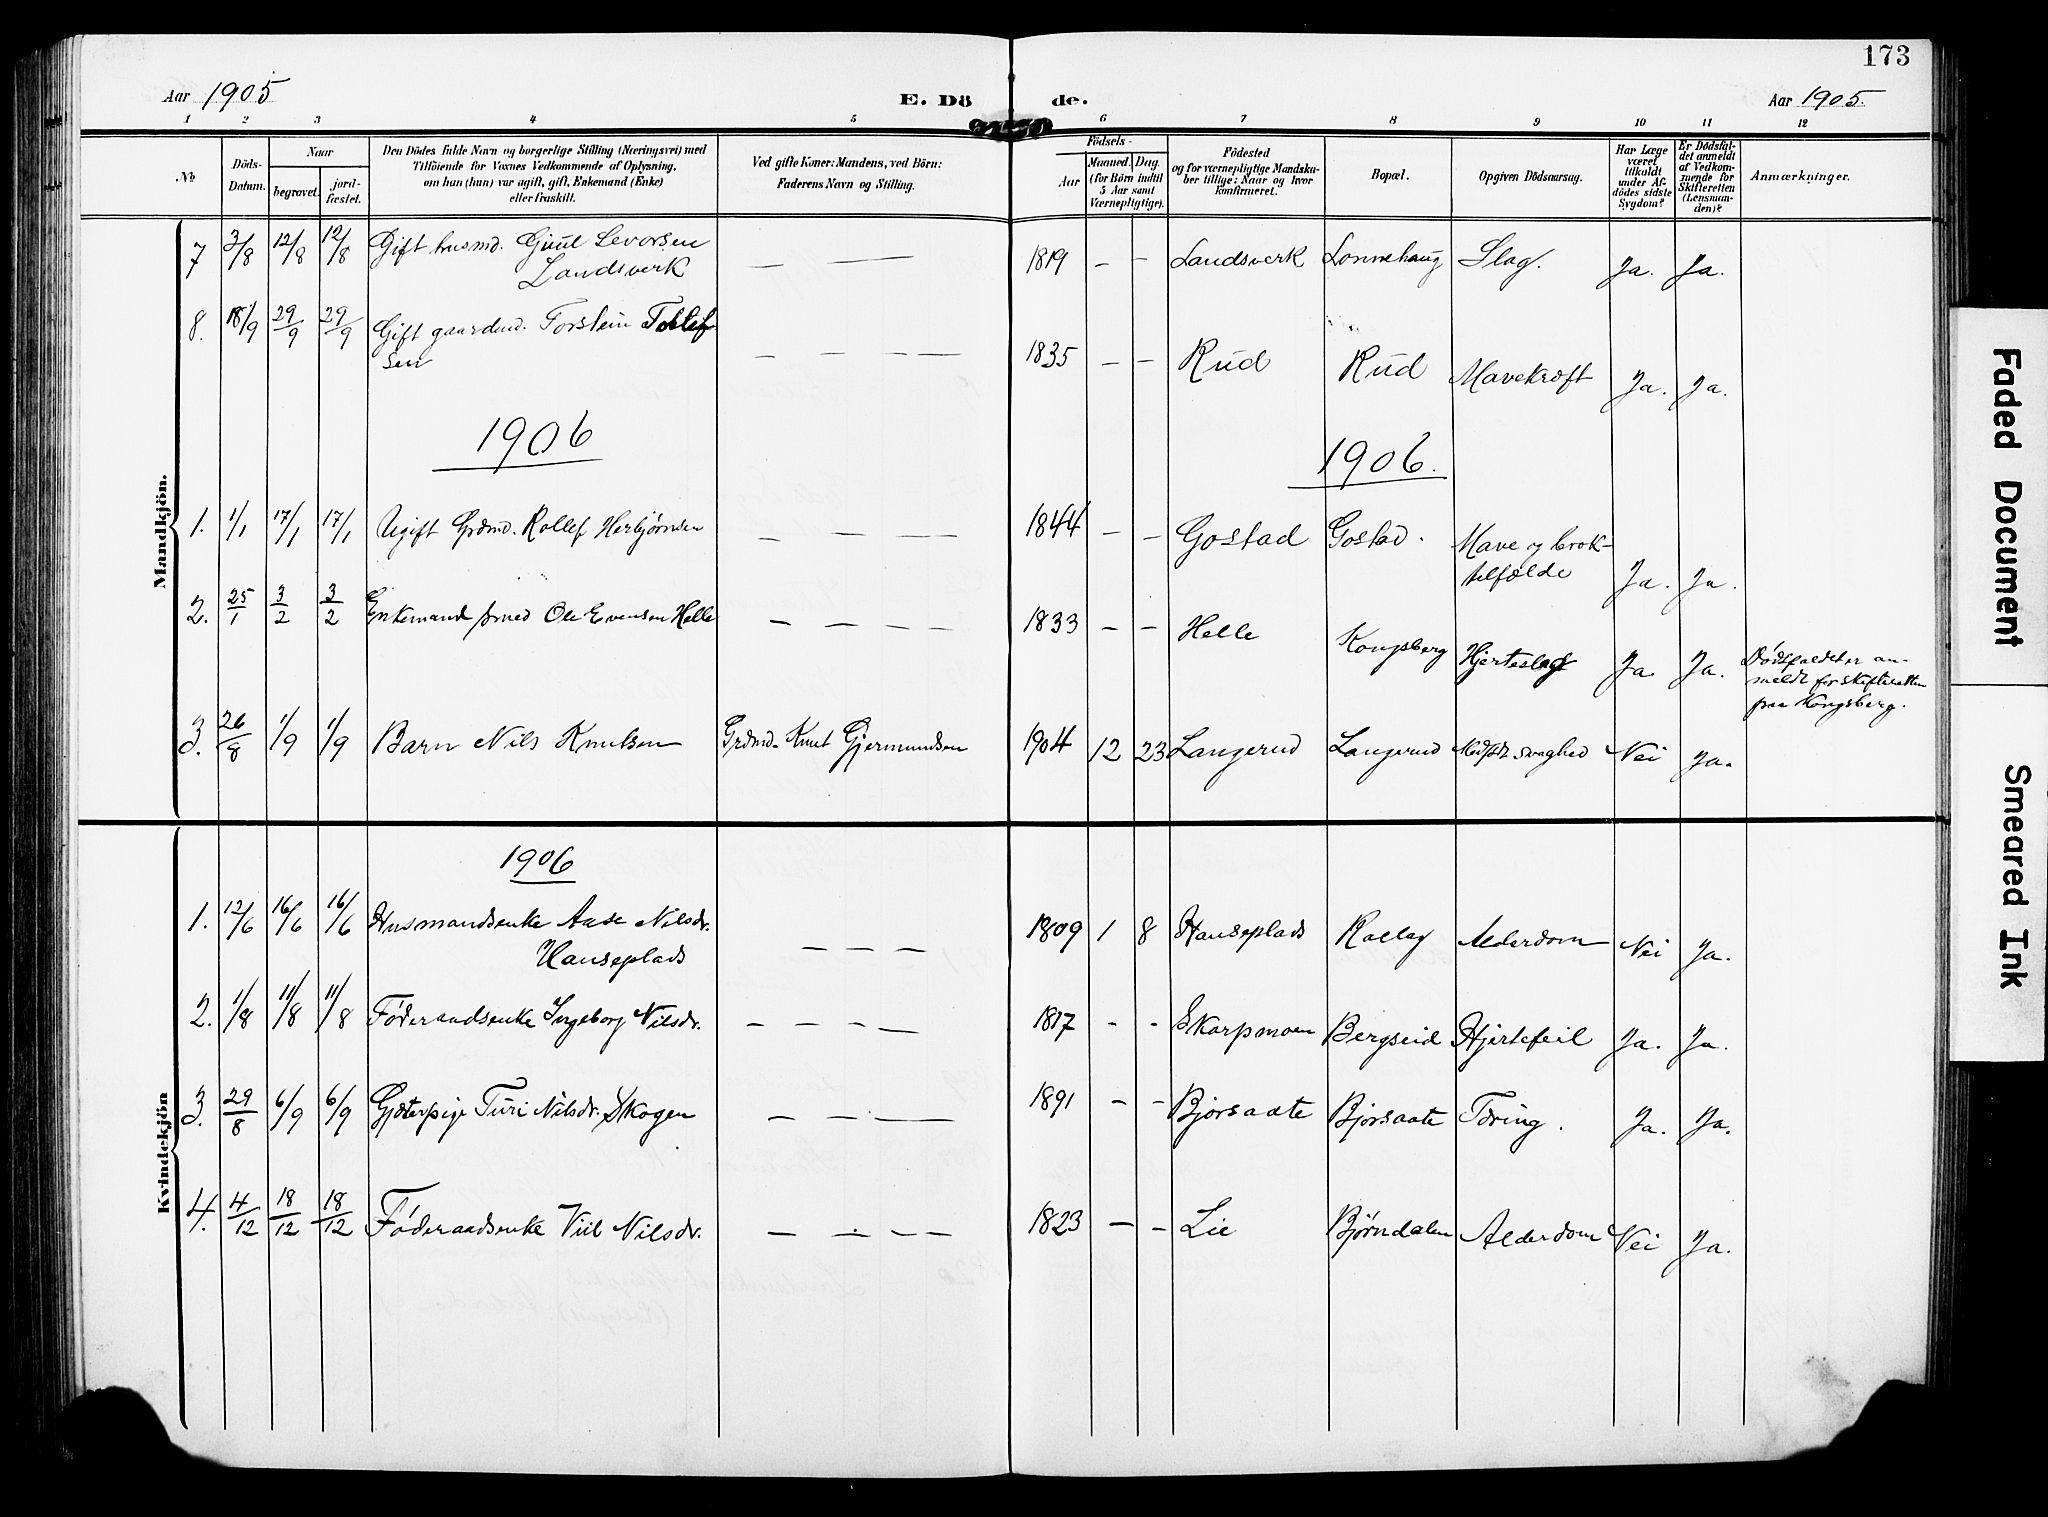 173
Aar 1905 E. Dö de. Aar 1905.
1 2 3 4 5 6 7 8 9 10 11 12
No
Döds-
Datum.
Naar
begravet.
jord-
fæstet.
Den Dödes fulde Navn og borgerlige Stilling (Næringsvei) med
Tilföiende for Voxnes Vedkommende af Oplysning,
om han (hun) var ugift, gift, Enkemand (Enke)
eller fraskilt.
Ved gifte Koner: Mandens, ved Börn:
Faderens Navn og Stilling.
Födsels-
Aar
Maaned. Dag.
(for Börn indtil
5 Aar samt
Værnepligtige).
Födested
og for værnepligtige Mandska-
ber tillige: Naar og hvor
konfirmeret.
Bopæl.
Opgiven Dödsaarsag.
Har Læge
været
tilkaldt
under Af-
dödes sidste
Sygdom?
Er Dödsfal-
det anmeldt
af Vedkom-
mende for
Skifteretten
(Lensman-
den)?
Anmærkninger.
Mandkjön.
7 3/8 12/8 12/8 Gift husmd. Gjuul Levorsen
Landsverk
— — 1819 — — Landsverk Lonnehaug Slag. Ja. Ja.
8. 18/9 29/9 29/9 Gift gaardmd. Torstein Tollef
sen
— — — — 1835 — — Rud Rud Mavekræft Ja. Ja.
1906 1906.
1. 1/1 17/1 17/1 Ugift Grdmd. Rollef Herbjørnsen — — — — 1844 — — Gostad Gostad. Mave og brok-
tilfælde Ja. Ja.
2. 25/1 3/2 3/2 Enkemand smed Ole Evensen Helle — — — — 1833 — — Helle Kongsberg Hjerteslag Ja Ja.
Dødsfaldet er an-
meldt for skifteretten
paa Kongsberg.
3. 26/8 1/9 1/9 Barn Nils Knutsen Grdmd. Knut Gjermundsen 1904 12 23 Langerud Langerud Medfødt svaghed Nei Ja.
Kvindekjön
1906
1. 12/6 16/6 16/6 Husmandsenke Aase Nilsdr.
Hanseplads
— — — 1809 1 8 Hanseplads Rollag Alderdom Nei Ja.
2. 1/8 11/8 11/8 Føderaadsenke Ingeborg Nilsdr. — — — — 1817 - - Skarpmoen Bergseid Hjertefeil Ja. Ja.
3. 29/8 6/9 6/9 Gjæterpige Turi Nilsdr. Skogen — — — 1891 — — Bjørsaate Bjørsaate Tæring. Ja. Ja.
4. 4/12 18/12 18/12 Føderaadsenke Viil Nilsdr. — — — — 1823 — — Lie Bjørndalen Alderdom Nei Ja.
Faded Document
Smeared Ink